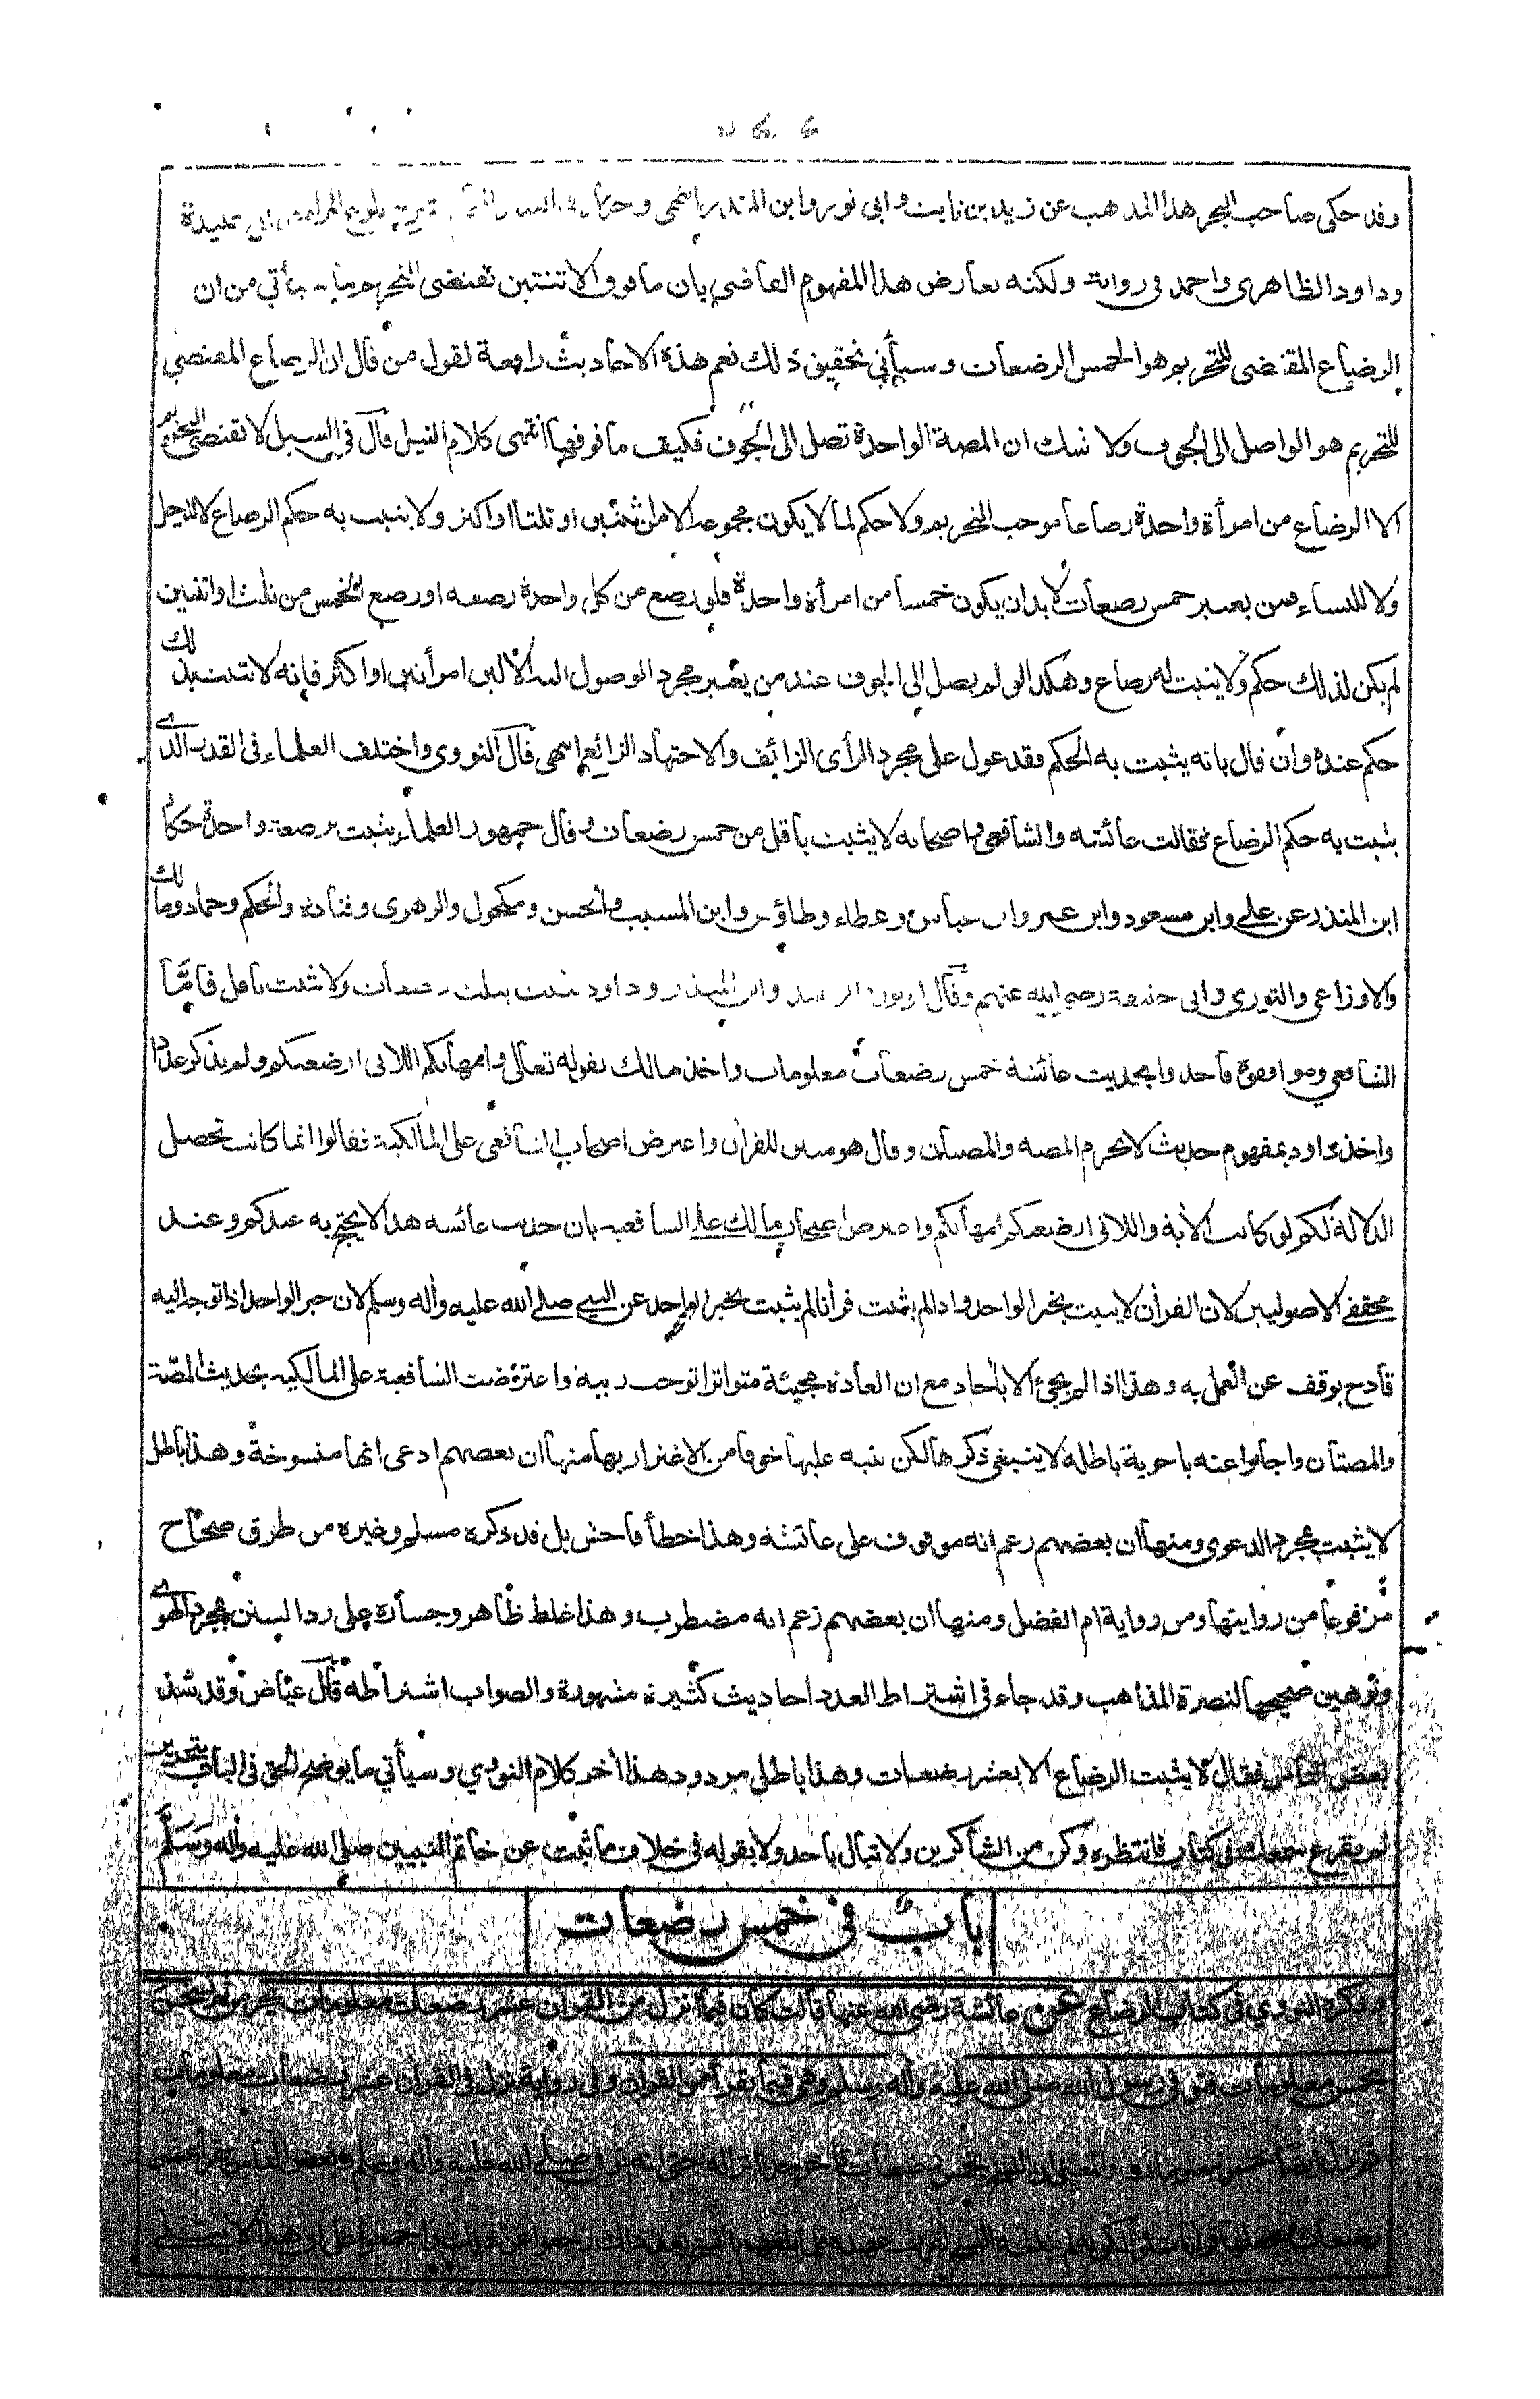 وقد حكى صاحب البحر هذا المذهب عن زيد بن ثابت وابي ثور وابن المنذر انتهى وحكاه
وداود الظاهري واحمد في رواية ولكنه يعارض هذا المفهوم القاضي بان ما فوق الاثنتين تقتضى التحريم ما يأتي من ان
الرضاع المقتضى للتحريم هو الخمس الرضعات وسيأتي تحقيق ذلك نعم هذه الاحاديث رافعة لقول من قال ان الرضاع المقتضى
للتحريم هو الواصل الى الجوف ولا نسلك ان المصة الواحدة تصل الى الجوف فكيف ما فوقها انتهى كلام النيل قال في السيل لا تقتضى التحريم
الا الرضاع من امرأة واحدة رضاعا موجب التحريم ولا حكم لما لا يكون مجموعه الا من ثنتين او ثلثا او اكثر ولا يثبت به حكم الرضاع لا للرجل
ولا للنساء فمن يعتبر خمس رضعات لا بد ان يكون خمسا من امرأة واحدة فلو رضع من كل واحدة رضعه او رضع الخمس من ثلث او اثنتين
لم يكن لذلك حكم ولا يثبت له رضاع وهكذا لو لم يصل الى الجوف عند من يعتبر مجرد الوصول اليه الا لبن امرأتين او اكثر فإنه لا يثبت بذلك
حكم عنده وان قال بانه يثبت به الحكم فقد عول على مجرد الرأى الزائف والاجتهاد الزائغ انتهى قال النووي واختلف العلماء في القدر الذي
يثبت به حكم الرضاع فقالت عائشة والشافعي واصحابه لا يثبت باقل من خمس رضعات وقال جمهور العلماء يثبت برضعة واحدة حكاه
ابن المنذر عن علي وابن مسعود وابن عمر وابن عباس وعطاء وطاؤس وابن المسيب والحسن ومكحول والزهري وقتادة والحكم وحماد ومالك
والاوزاعي والثوري وابي حنيفة رضي الله عنهم وقال ابو ثور وابو عبيد وابن المنذر وداود يثبت بثلث رضعات ولا يثبت باقل فامّا
الشافعي وموافقوه فأخذوا بحديث عائشة خمس رضعات معلومات واخذ مالك بقوله تعالى وامهاتكم اللاتي ارضعنكم ولم يذكر عددا
واخذ داود بمفهوم حديث لا تحرم المصة والمصتان وقال هو مبين للقرآن واعترض اصحاب الشافعي على المالكية فقالوا انما كانت تحصل
الدلالة لكم لو كانت الآية واللاتي ارضعنكم امهاتكم واعترض اصحاب مالك على الشافعية بان حديث عائشة هذا لا يحتج به عندكم وعند
محققي الاصوليين لان القرآن لا يثبت بخبر الواحد واذا لم يثبت قرآنا لم يثبت بخبر الواحد عن النبي صلى الله عليه وآله وسلم لان خبر الواحد اذا توجه اليه
قادح يوقف عن العمل به وهذا اذا لم يجئ الا بآحاد مع ان العادة مجيئة متواترا توجب ريبة واعترضت الشافعية على المالكية بحديث المصّة
والمصتان واجابوا عنه باجوبة باطلة لا ينبغي ذكرها لكن ننبه عليها خوفا من الاغترار بها منها ان بعضهم ادعى انها منسوخة وهذا باطل
لا يثبت بمجرد الدعوى ومنها ان بعضهم زعم انه موقوف على عائشة وهذا خطأ فاحش بل قد ذكره مسلم وغيره من طرق صحاح
مرفوعا من روايتها ومن رواية ام الفضل ومنها ان بعضهم زعم انه مضطرب وهذا غلط ظاهر وجسارة على رد السنن بمجرد الهوى
وتوهين صحيحها لنصرة المذاهب وقد جاء في اشتراط العدد احاديث كثيرة مشهورة والصواب اشتراطه قال عياض وقد شذ
بعض الناس فقال لا يثبت الرضاع الا بعشر رضعات وهذا باطل مردود هذا آخر كلام النووي وسيأتي ما يوضح الحق في الباب بتحرير
لم يقرع سمعك في كتاب فانتظره وكن من الشاكرين ولا تبال باحد ولا بقوله في خلاف ما ثبت عن خاتم النبيين صلى الله عليه وآله وسلم
باب في خمس رضعات
وذكره النووي في كتاب الرضاع عن عائشة رضي الله عنها قالت كان فيما انزل من القرآن عشر رضعات معلومات يحرمن ثم نسخن
بخمس معلومات فتوفي رسول الله صلى الله عليه وآله وسلم وهي فيما يقرأ من القرآن وفي رواية نزل في القرآن عشر رضعات معلومات
ثم نزل ايضا خمس معلومات والمعنى ان النسخ بخمس رضعات تأخر جدا انزاله حتى انه توفي صلى الله عليه وآله وسلم وبعض الناس يقرأ خمس
رضعات ويجعلها قرآنا متلوا لكونه لم يبلغه النسخ لقرب عهده فلما بلغهم النسخ بعد ذلك رجعوا عن ذلك واجمعوا على ان هذا لا يتلى